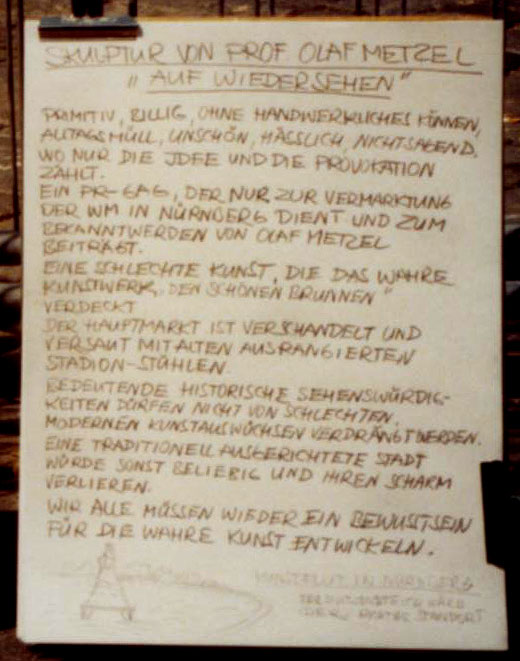 SKULPTUR VON PROF. OLAF METZEL
„AUF WIEDERSEHEN"
PRIMITIV, BILLIG, OHNE HANDWERKLICHES KÖNNEN,
ALLTAGSMÜLL, UNSCHÖN, HÄSSLICH, NICHTSSAGEND,
WO NUR DIE IDEE UND DIE PROVOKATION
ZÄHLT.
EIN PR-GAG, DER NUR ZUR VERMARKTUNG
DER WM IN NÜRNBERG DIENT UND ZUM
BEKANNTWERDEN VON OLAF METZEL
BEITRÄGT.
EINE SCHLECHTE KUNST, DIE DAS WAHRE
KUNSTWERK „DEN SCHÖNEN BRUNNEN"
VERDECKT
DER HAUPTMARKT IST VERSCHANDELT UND
VERSAUT MIT ALTEN AUSRANGIERTEN
STADION-STÜHLEN.
BEDEUTENDE HISTORISCHE SEHENSWÜRDIG-
KEITEN DÜRFEN NICHT VON SCHLECHTEN,
MODERNEN KUNSTAUSWÜCHSEN VERDRÄNGT WERDEN.
EINE TRADITIONELL AUSGERICHTETE STADT
WÜRDE SONST BELIEBIG UND IHREN SCHARM
VERLIEREN.
WIR ALLE MÜSSEN WIEDER EIN BEWUSTSEIN
FÜR DIE WAHRE KUNST ENTWICKELN.
IN NÜRNBERG
STANDORT